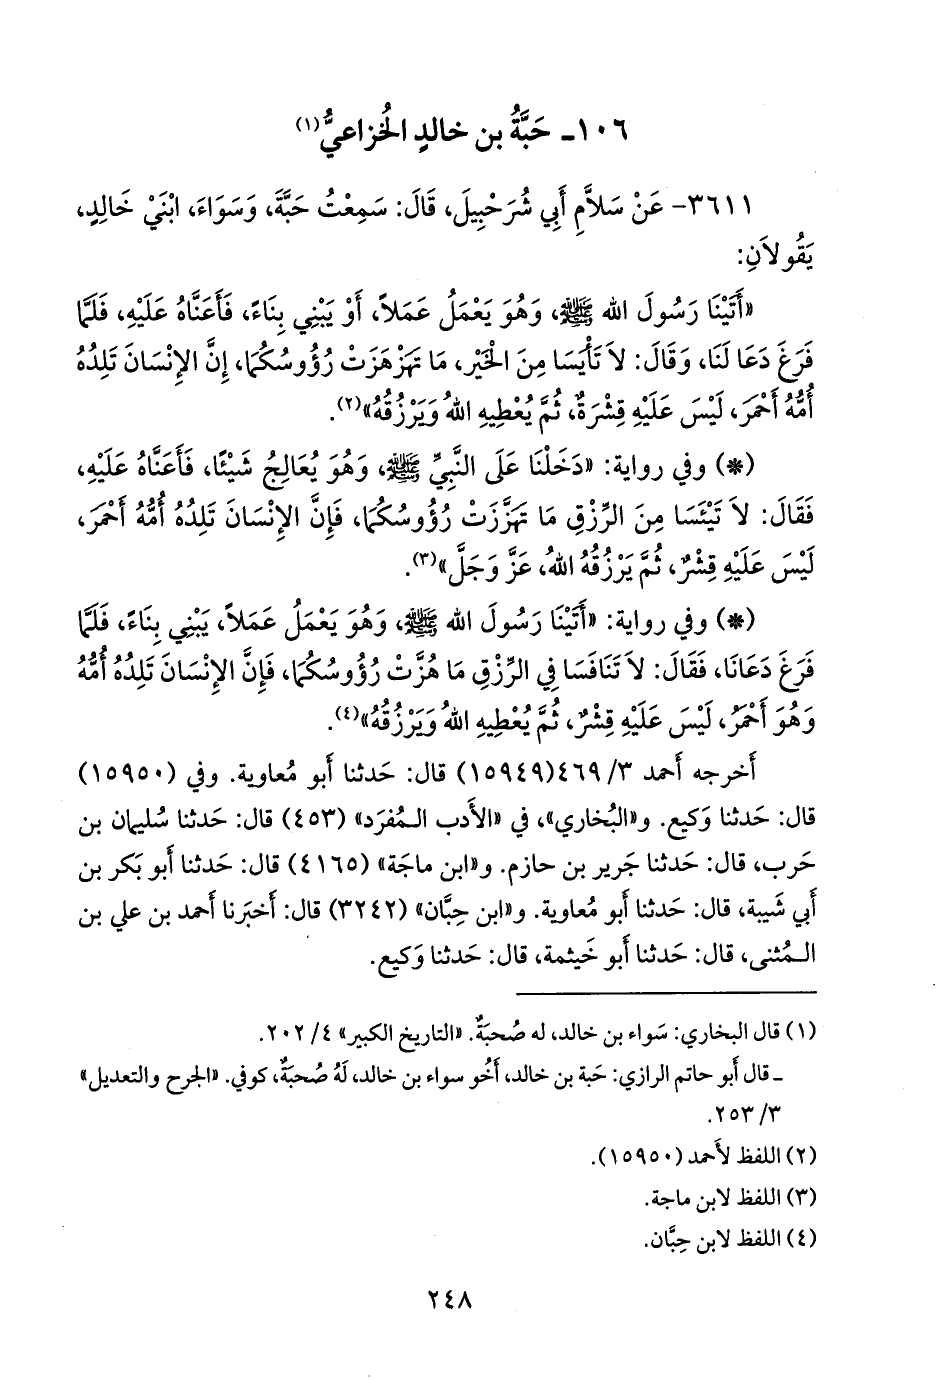 ١٠٦- حَبَّةُ بن خالدٍ الخُزاعيُّ(١)
٣٦١١- عَنْ سَلاَّمٍ أَبِي شُرَحْبِيلَ، قَالَ: سَمِعْتُ حَبَّةَ، وَسَوَاءَ، ابْنَيْ خَالِدٍ،
يَقُولاَنِ:
«أَتَيْنَا رَسُولَ الله ﷺ، وَهُوَ يَعْمَلُ عَمَلاً، أَوْ يَبْنِي بِنَاءً، فَأَعَنَّاهُ عَلَيْهِ، فَلَمَّا
فَرَغَ دَعَا لَنَا، وَقَالَ: لاَ تَأْيَسَا مِنَ الْخَيْرِ، مَا تَهَزْهَزَتْ رُؤُوسُكُمَا، إِنَّ الإِنْسَانَ تَلِدُهُ
أُمُّهُ أَحْمَرَ، لَيْسَ عَلَيْهِ قِشْرَةٌ، ثُمَّ يُعْطِيهِ اللهُ وَيَرْزُقُهُ»(٢).
(*) وفي رواية: «دَخَلْنَا عَلَى النَّبِيِّ ﷺ، وَهُوَ يُعَالِجُ شَيْئًا، فَأَعَنَّاهُ عَلَيْهِ،
فَقَالَ: لاَ تَيْئَسَا مِنَ الرِّزْقِ مَا تَهَزَّزَتْ رُؤُوسُكُمَا، فَإِنَّ الإِنْسَانَ تَلِدُهُ أُمُّهُ أَحْمَرَ،
لَيْسَ عَلَيْهِ قِشْرٌ، ثُمَّ يَرْزُقُهُ اللهُ، عَزَّ وَجَلَّ»(٣).
(*) وفي رواية: «أَتَيْنَا رَسُولَ الله ﷺ، وَهُوَ يَعْمَلُ عَمَلاً، يَبْنِي بِنَاءً، فَلَمَّا
فَرَغَ دَعَانَا، فَقَالَ: لاَ تَنَافَسَا فِي الرِّزْقِ مَا هُزَّتْ رُؤُوسُكُمَا، فَإِنَّ الإِنْسَانَ تَلِدُهُ أُمُّهُ
وَهُوَ أَحْمَرُ، لَيْسَ عَلَيْهِ قِشْرٌ، ثُمَّ يُعْطِيهِ اللهُ وَيَرْزُقُهُ»(٤).
أَخرجه أَحمد ٣/ ٤٦٩(١٥٩٤٩) قال: حَدثنا أَبو مُعاوية. وفي (١٥٩٥٠)
قال: حَدثنا وَكيع. و«البُخاري»، في «الأَدب الـمُفرَد» (٤٥٣) قال: حَدثنا سُليمان بن
حَرب، قال: حَدثنا جَرير بن حازم. و«ابن ماجَة» (٤١٦٥) قال: حَدثنا أَبو بَكر بن
أَبي شَيبة، قال: حَدثنا أَبو مُعاوية. و«ابن حِبَّان» (٣٢٤٢) قال: أَخبَرنا أَحمد بن علي بن
الـمُثنى، قال: حَدثنا أَبو خَيثمة، قال: حَدثنا وَكيع.
(١) قال البخاري: سَواء بن خالد، له صُحبَةٌ. «التاريخ الكبير» ٤/ ٢٠٢.
ـ قال أَبو حاتم الرازي: حَبة بن خالد، أَخُو سواء بن خالد، لَهُ صُحبَةٌ، كوفي. «الجرح والتعديل»
٣/ ٢٥٣.
(٢) اللفظ لأَحمد (١٥٩٥٠).
(٣) اللفظ لابن ماجة.
(٤) اللفظ لابن حِبَّان.
٢٤٨